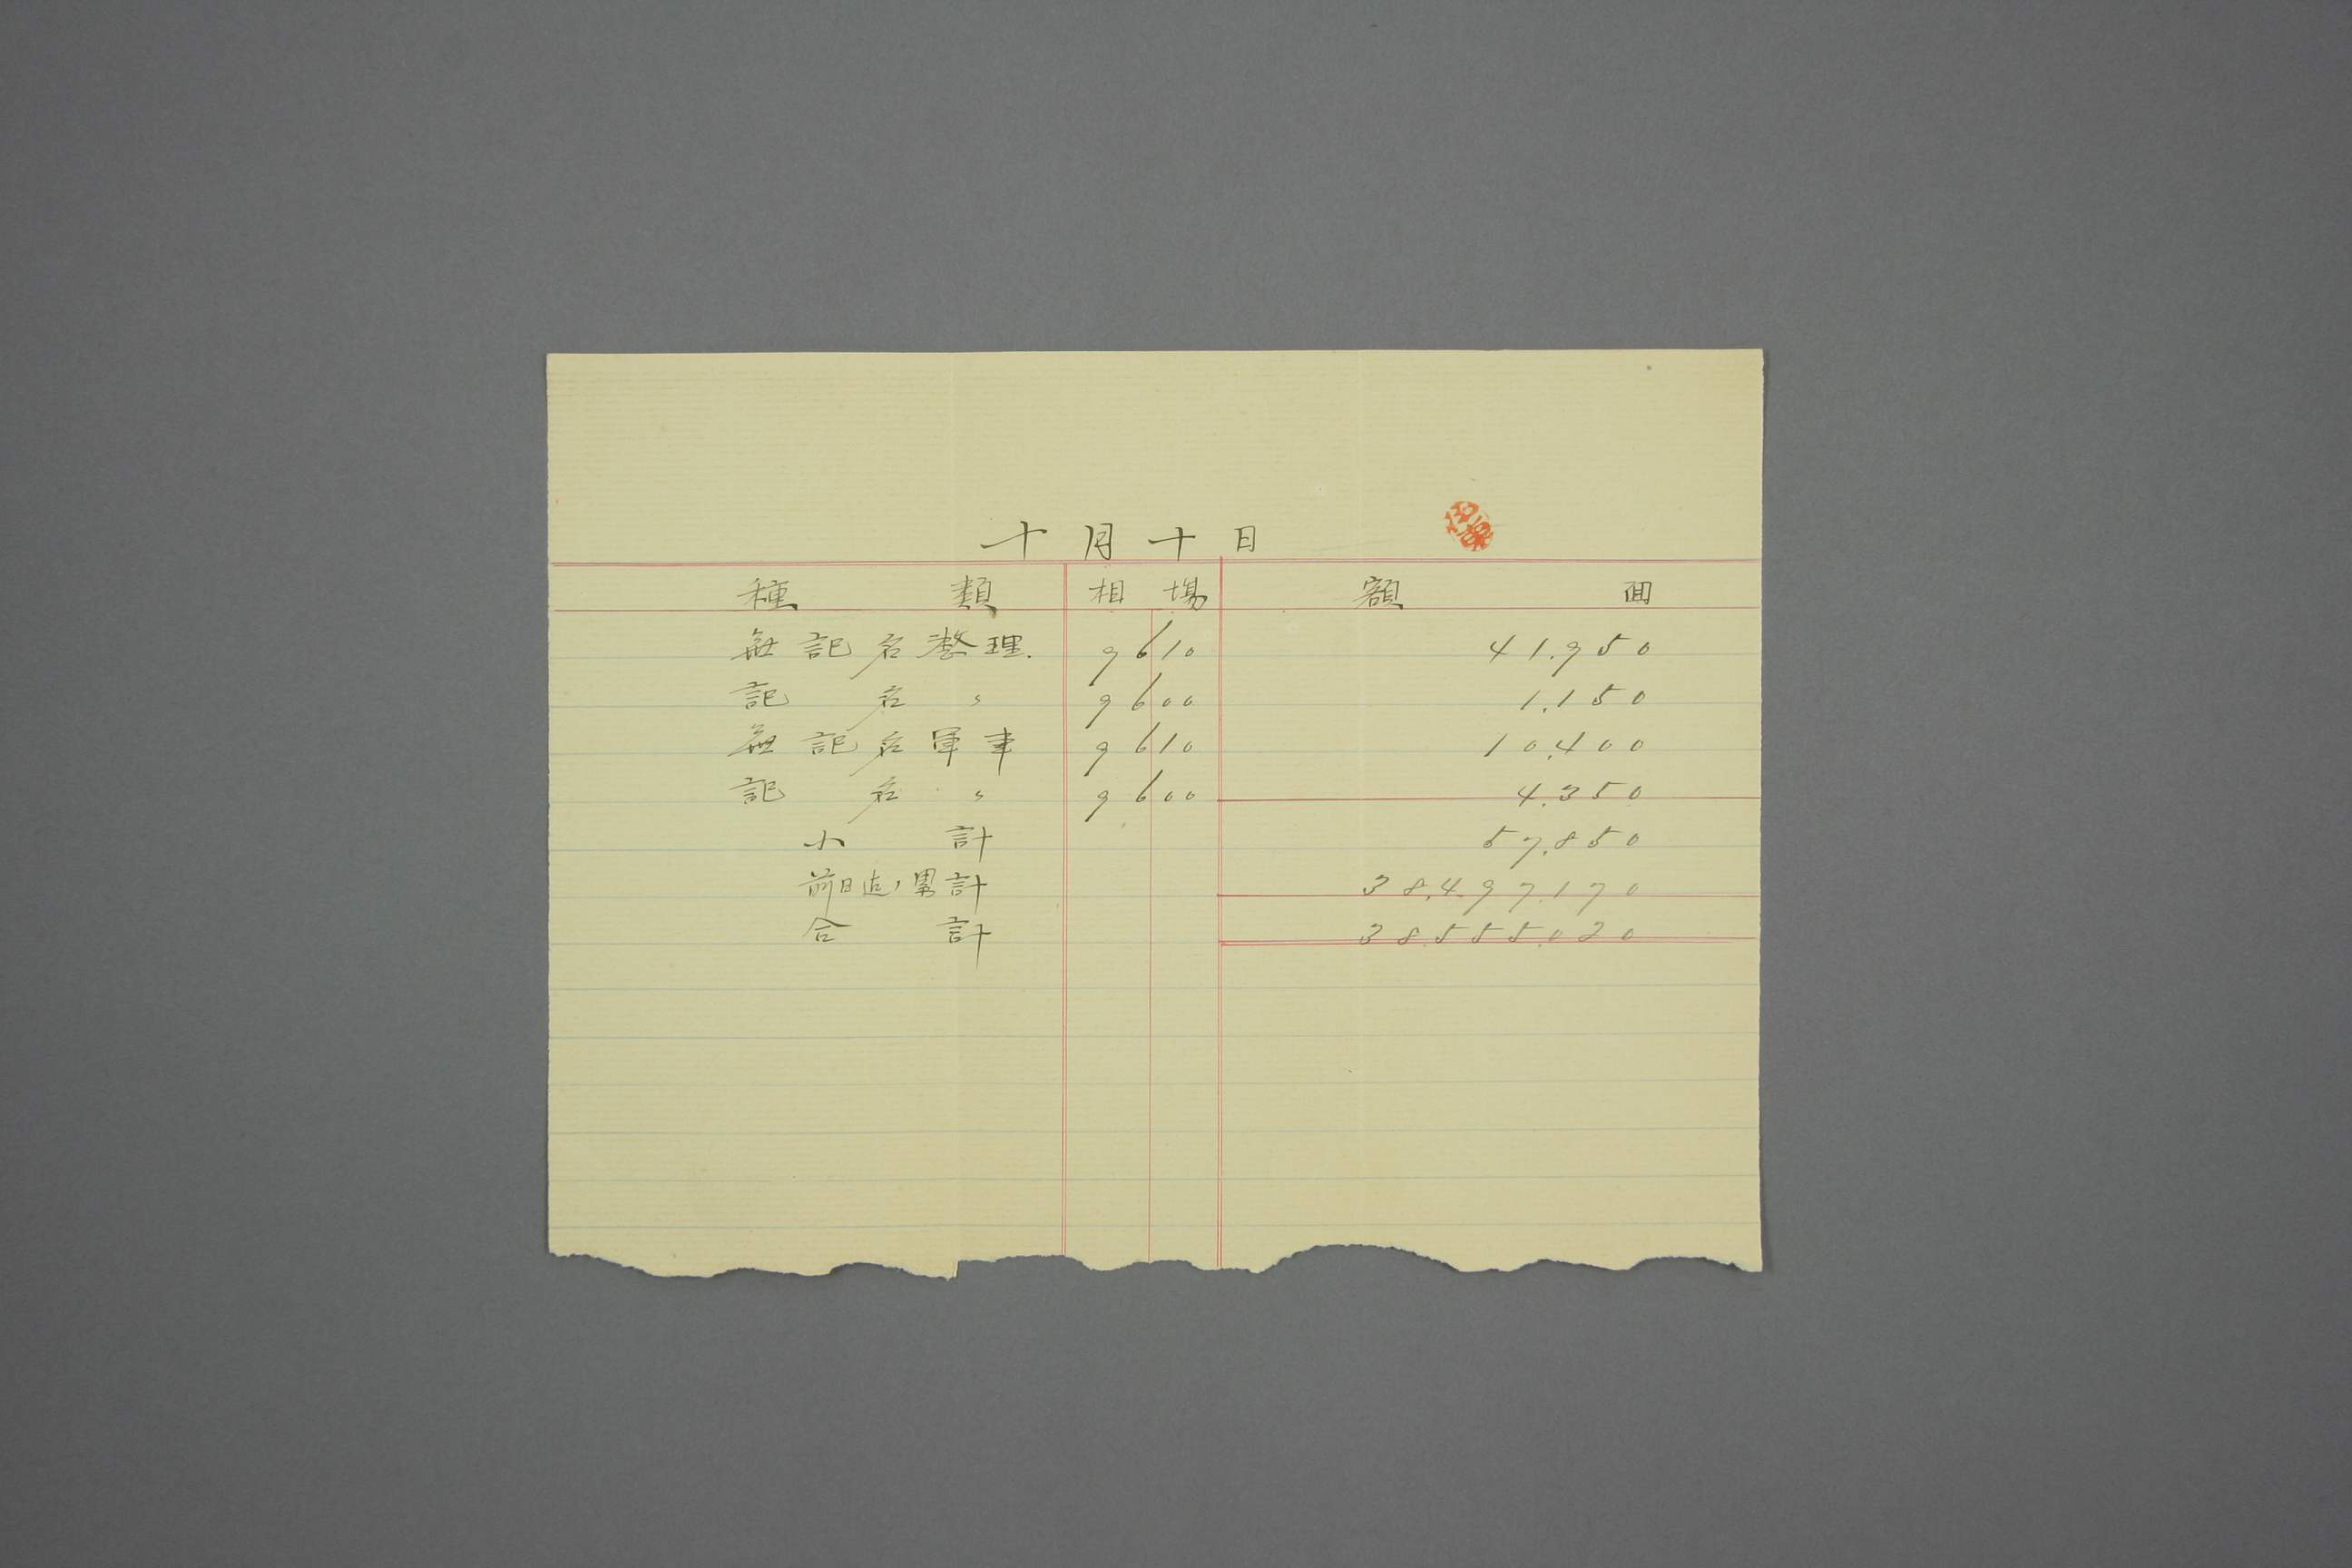 十月十日
種類 相場 額面
無記名整理. 9610 41.950
記名〃 9600 1.150
無記名軍事 9610 10.400
記名〃 9600 4.350
小計 57.850
前日迄ノ累計 38.497.170
合計 38.555.020